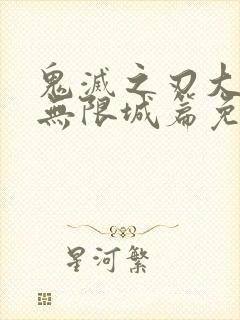 鬼滅之刃大
無限城篇免
星河繁